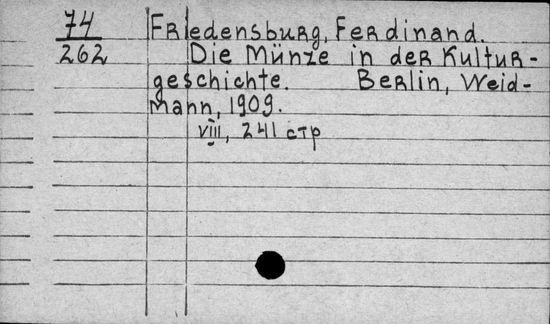 74
262
Friedensburg, Ferdinand.
Die Münze in der Kultur-
geschichte. Berlin, Weid-
mann, 1909.
VIII, 241 стр